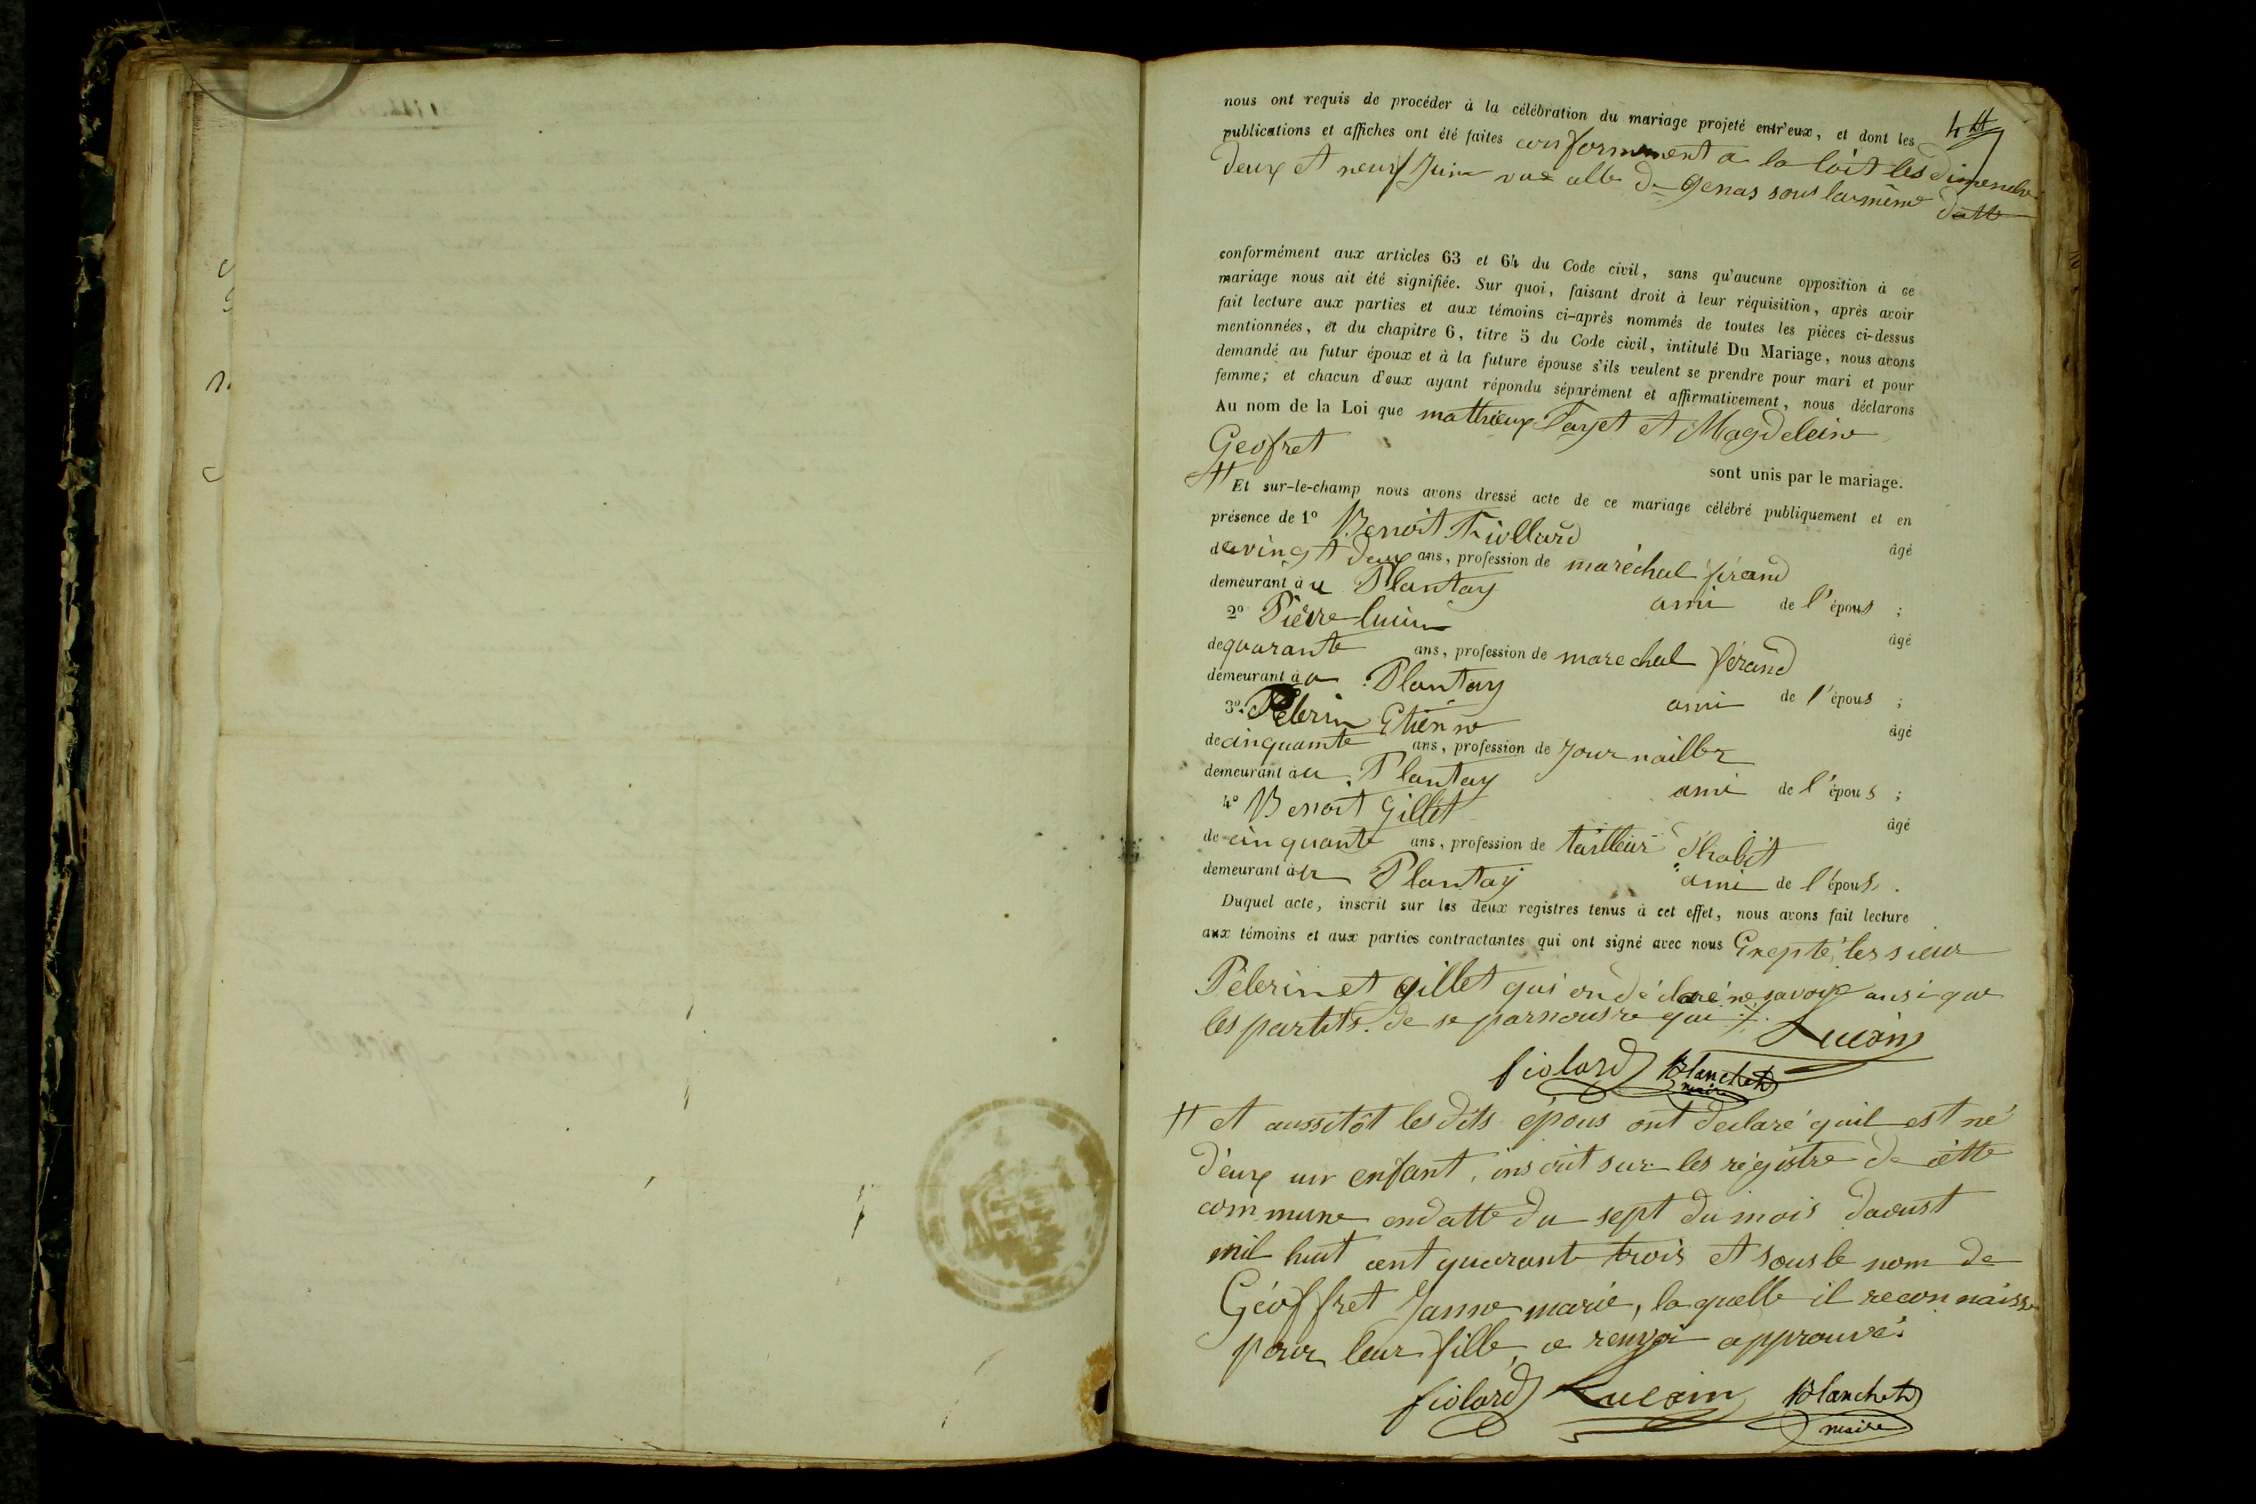 nous ont requis de procéder à la célébration du mariage projeté entr'eux, et dont les
publications et affiches ont été faites conformement a la loit les dimenche
deux et neuf Juin vue alle de genas sous la même datte
conformément aux articles 63 et 64 du Code civil, sans qu'aucune opposition à ce
mariage nous ait été signifiée. Sur quoi, faisant droit à leur réquisition, après avoir
fait lecture aux parties et aux témoins ci-après nommés de toutes les pièces ci-dessus
mentionnées, et du chapitre 6, titre 5 du Code civil, intitulé Du Mariage, nous avons
demandé au futur époux et à la future épouse s'ils veulent se prendre pour mari et pour
femme; et chacun d'eux ayant répondu séparément et affirmativement, nous déclarons
Au nom de la Loi que mathieux Fayet et Magdeleine
Geofret
sont unis par le mariage.
Et sur-le-champ nous avons dressé acte de ce mariage célébré publiquement et en
présence de 1º Benoit Fiollard âgé
de vingt deux ans, profession de maréchal férand
demeurant à u Plantay ami de l'épous ;
2º Pierre Lucin âgé
de quarante ans, profession de marechal férand
demeurant à u Plantay ami de l'épous ;
3º Pélerin Etienne âgé
de cinquante ans, profession de Journailler
demeurant à u Plantay ami de l'épous ;
4º Benoit Gillet âgé
de cinquante ans, profession de tailleur d'habit
demeurant à u Plantay ami de l'épous .
Duquel acte, inscrit sur les deux registres tenus à cet effet, nous avons fait lecture
aux témoins et aux parties contractantes qui ont signé avec nous Exepté les sieur
Pélerin et gillet qui on déclaré ne savoir ausi que
les partits. de se par nous re qui
Lucain
fiolard Blanchet
maire
et aussitôt les dits épous ont déclaré quil est né
d'eux un enfant, inscrit sur les régistre de cette
commune en datte du sept du mois daoust
mil huit cent quarante trois et sous le nom de
Géoffret Janne marie, la quelle il reconnaisse
pour leur fille, ce renvoi approuvé.
fiolard Lucain Blanchet
maire